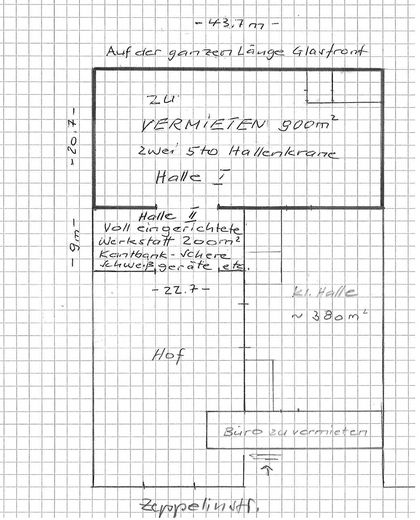 - 43.7 m -
Auf der ganzen Länge Glasfront
- 20.7 -
zu
VERMIETEN 900m²
zwei 5to Hallenkrane
Halle I
- 9m -
Halle II
Voll eingerichtete
Werkstatt 200m²
Kantbank - Schere
Schweißgeräte, etc.
- 22.7 -
kl. Halle
~ 380m²
Hof
Büro zu vermieten
Zeppelinstr.